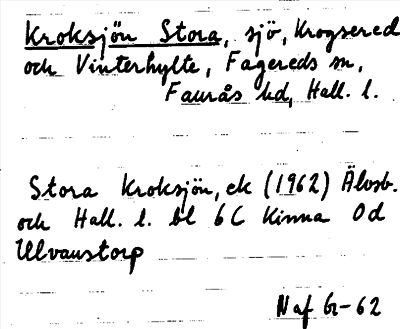 Kroksjön Stora, sjö, Krogsered
och Vinterhylte, Fagereds sn,
Faurås hd, Hall. l.
Stora Kroksjön, ek (1962) Älvsb.
och Hall. l. bl 6C Kinna 0d
Ulvanstorp
Naf Gr-62